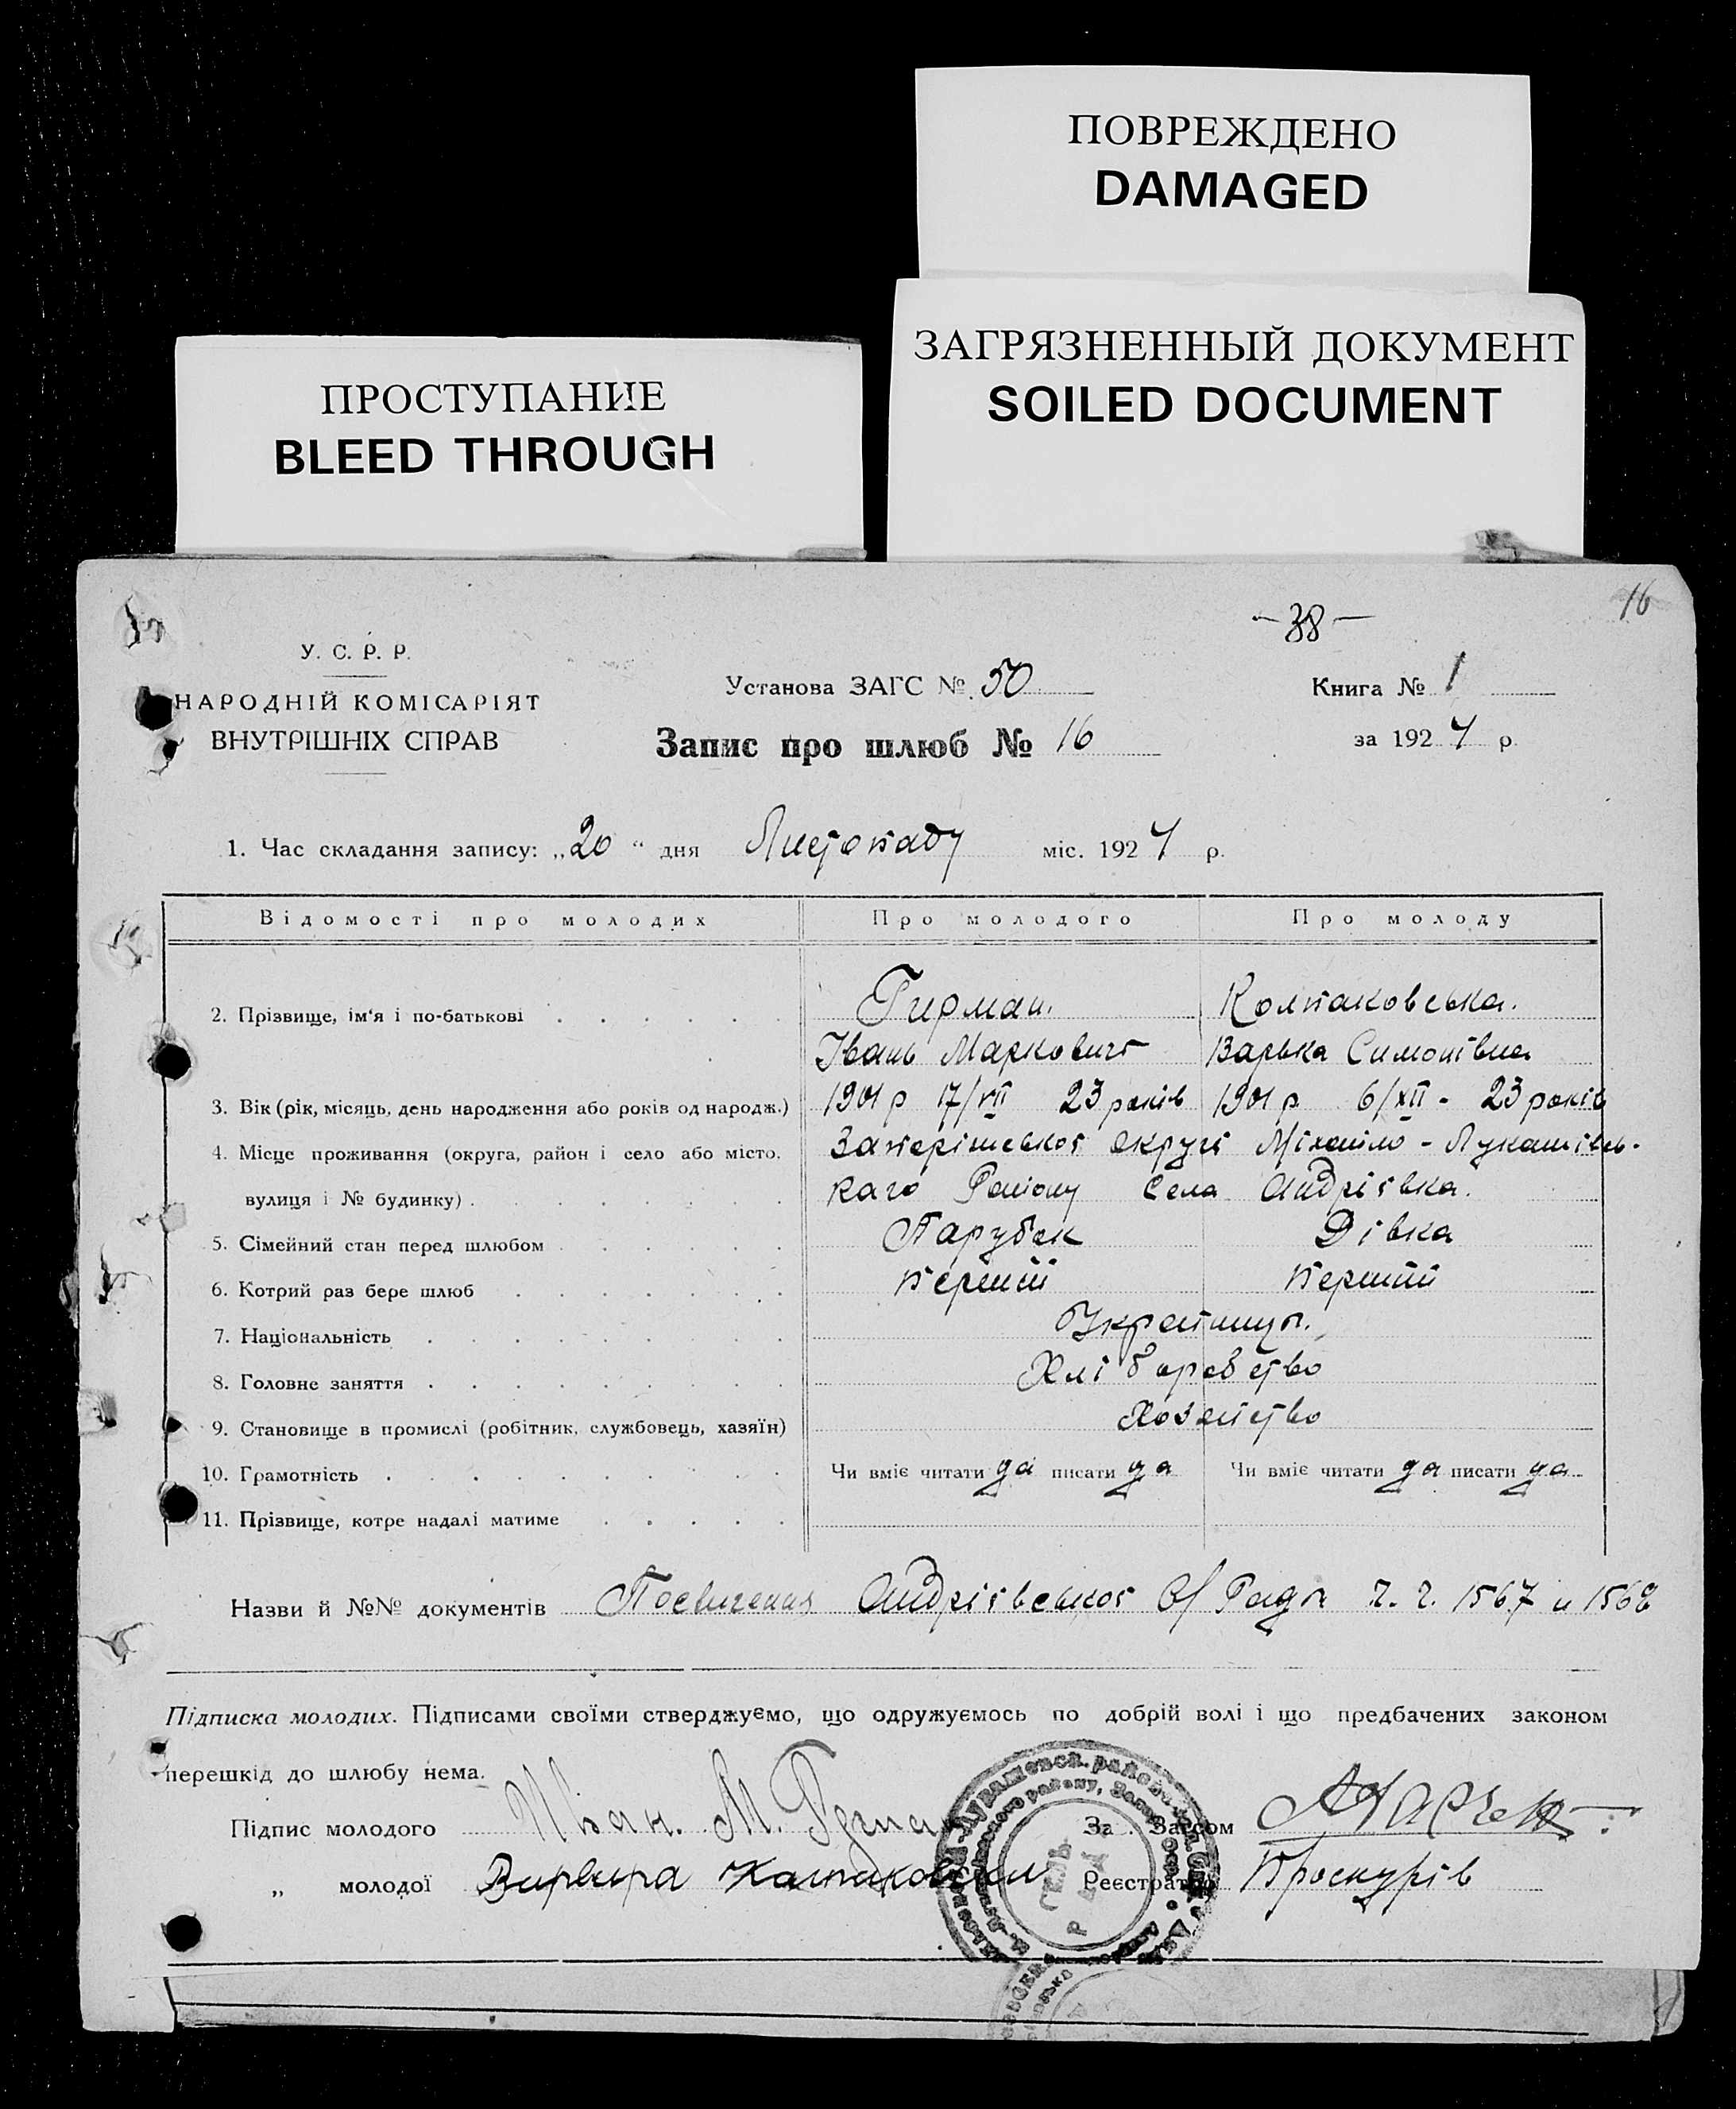 ПОВРЕЖДЕНО
DAMAGED
ЗАГРЯЗНЕННЫЙ ДОКУМЕНТ
SOILED DOCUMENT
ПРОСТУПАНИЕ
BLEED THROUGH
16
У. С. Р. Р.
НАРОДНІЙ КОМІСАРІЯТ
ВНУТРІШНІХ СПРАВ
Установа ЗАГС № 50
Запис про шлюб № 16
Книга № 1
за 1924 р.
1. Час складання запису: „20“ дня Листопаду міс. 1924 р.
Відомості про молодих Про молодого Про молоду
2. Прізвище, ім'я і по-батькові Гирман. Колпаковська.
Івань Маркович Варька Симонівна
3. Вік (рік, місяць, день народження або років од народж.) 1901 р 17/VII 23 років 1901 р 6/XII - 23 років
4. Місце проживання (округа, район і село або місто, Запоріжськоі округі Міхайло-Лукашівсь-
вулиця і № будинку) каго Раіону Села Андріївка.
5. Сімейний стан перед шлюбом Парубок Дівка
6. Котрий раз бере шлюб перший перший
7. Національність Українци.
8. Головне заняття Хліборобство
9. Становище в промислі (робітник, службовець, хазяїн) Хозяйство
10. Грамотність Чи вміє читати да писати да Чи вміє читати да писати да
11. Прізвище, котре надалі матиме
Назви й №№ документів Посвичения Андріївськоі С/Ради ч. ч. 1567 и 1568
Підписка молодих. Підписами своїми стверджуємо, що одружуємось по добрій волі і що предбачених законом
перешкід до шлюбу нема.
Підпис молодого Иван. М. За Загсом
„ молодої Реєстратор Проскурів